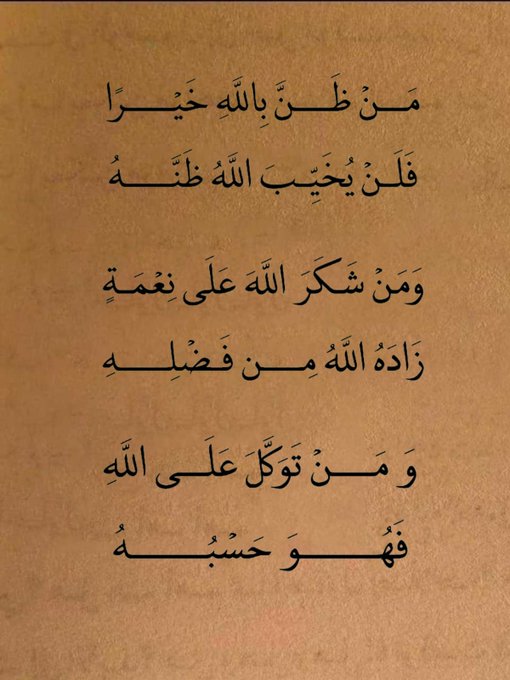 مَنْ ظَنَّ بِاللَّهِ خَيْرًا
فَلَنْ يُخَيِّبَ اللَّهُ ظَنَّهُ
وَمَنْ شَكَرَ اللَّهَ عَلَى نِعْمَةٍ
زَادَهُ اللَّهُ مِن فَضْلِهِ
وَ مَنْ تَوَكَّلَ عَلَى اللَّهِ
فَهُوَ حَسْبُهُ